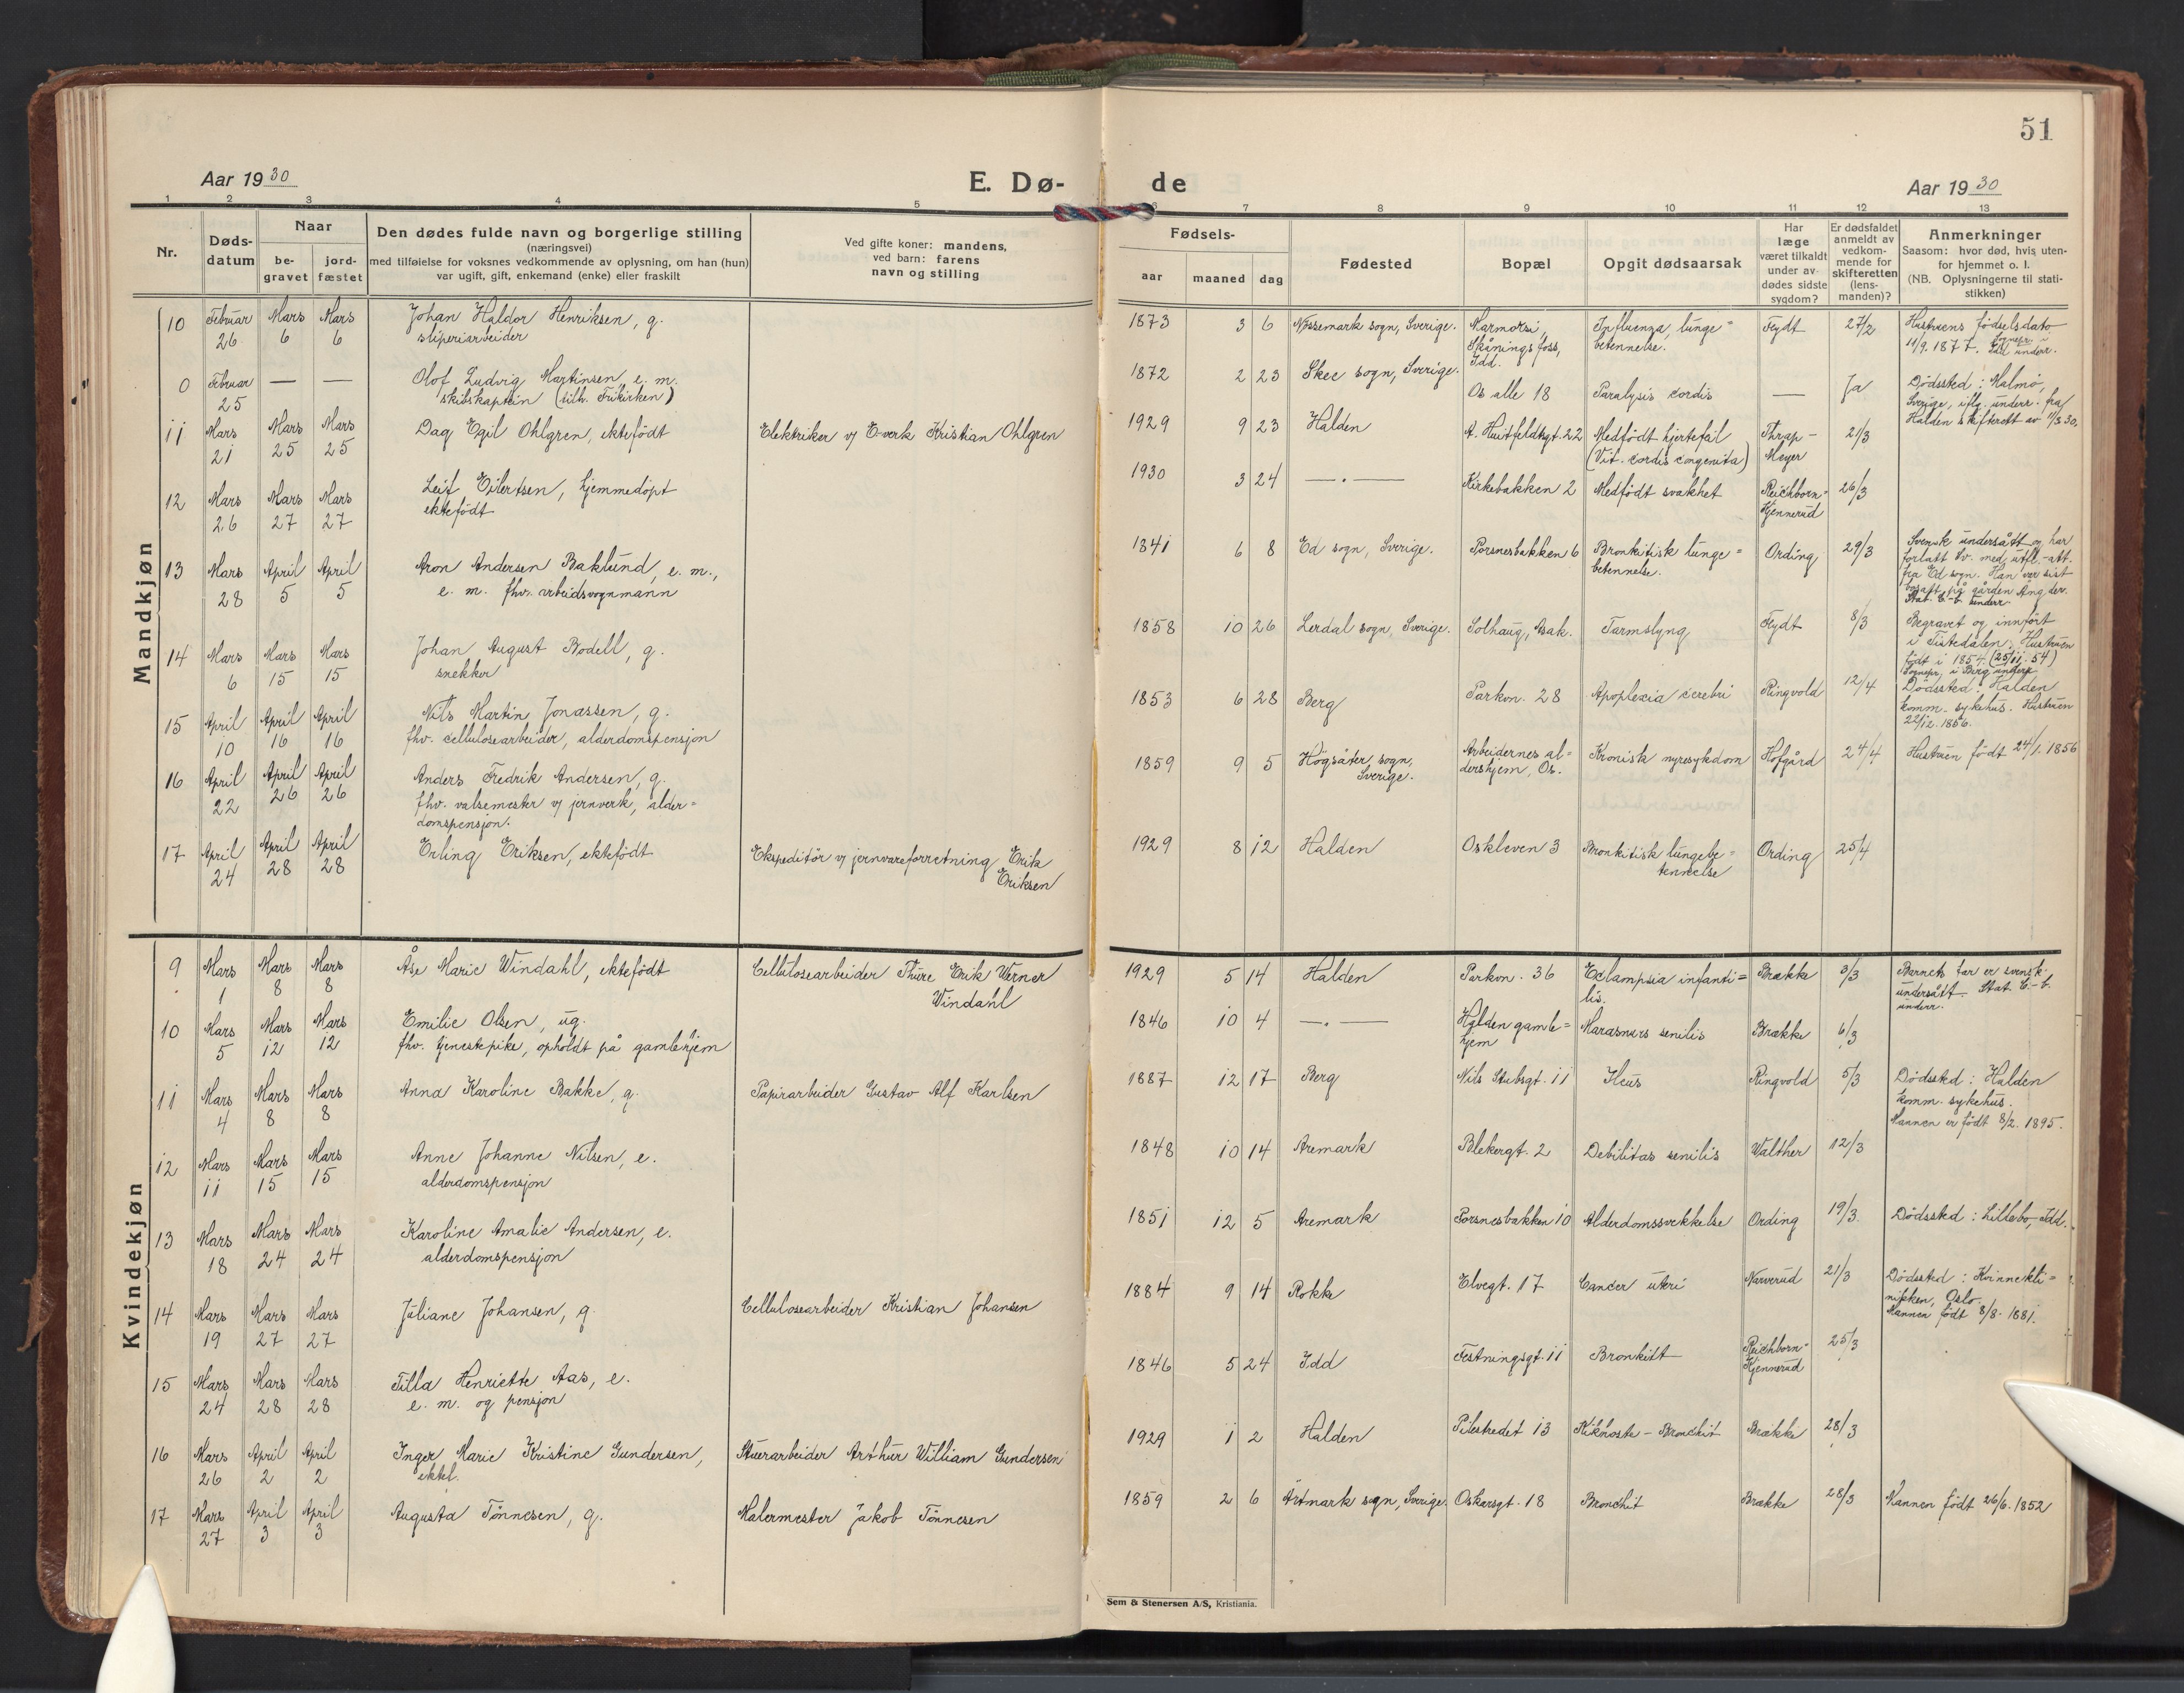 51
Aar 1930
E. Dø-
de
Aar 1930
1 2 3 4 5 6 7 8 9 10 11 12 13
Nr.
Døds-
datum
Naar
be-
gravet
jord-
fæstet
Den dødes fulde navn og borgerlige stilling
(næringsvei)
med tilføielse for voksnes vedkommende av oplysning, om han (hun)
var ugift, gift, enkemand (enke) eller fraskilt
Ved gifte koner: mandens,
ved barn: farens
navn og stilling
Fødsels-
aar maaned dag
Fødested
Bopæl
Opgit dødsaarsak
Har
læge
været tilkaldt
under av-
dødes sidste
sygdom?
Er dødsfaldet
anmeldt av
vedkom-
mende for
skifteretten
(lens-
manden)?
Anmerkninger
Saasom: hvor død, hvis uten-
for hjemmet o. l.
(NB. Oplysningerne til stati-
stikken)
Mandkjøn
10 Februar 26 Mars 6 Mars 6 Johan Haldor Henriksen, g.
sliperiarbeider
1873 3 6 Nössemark sogn, Sverige.
Skåningsfoss,
Idd.
Influenza, lunge=
betennelse.
Feydt 27/2 Hustruens födselsdato
11/9. 1877.
0 Februar 25 — — Olof Ludvig Martinsen, e. m.
skibskaptein (tilh. Frikirken)
1872 2 23 Skee sogn, Sverige. Os alle 18 Paralysis cordis — Ja Dödssted: Malmö,
Sverige, iflg. underr. fra
Halden skifterett av 11/3 30.
11 Mars 21 Mars 25 Mars 25 Dag Egil Ohlgren, ektefödt Elektriker v/ E-verk Kristian Ohlgren
1929 9 23 Halden A. Huitfeldtsgt. 22 Medfödt hjertefeil
(Vit. cordis congenita)
Thrap-
Meyer
21/3
12 Mars 26 Mars 27 Mars 27 Leif Eilertsen, hjemmedöpt
ektefödt
1930 3 24 —.— Kirkebakken 2 Medfödt svakhet Reichborn-
Kjennerud
26/3
13 Mars 28 April 5 April 5 Aron Andersen Baklund, e. m.,
e. m. fhv. arbeidsvognmann
1841 6 8 Ed sogn, Sverige. Porsnesbakken 6 Bronkitisk lunge=
betennelse.
Ording 29/3 Svensk undersått og har
forlatt Sv. med utfl.-att.
fra Ed sogn. Han var sist
bosatt på gården
Stat. C.-b. underr.
14 Mars 6 Mars 15 Mars 15 Johan August Bodell, g.
snekker
1858 10 26 Lerdal sogn, Sverige. Solhaug, Bak. Tarmslyng Feydt 8/3 Begravet og innfört
i Tistedalen. Hustruen
födt i 1854 (25/11. 54)
Sognepr. i Berg underr.
15 April 10 April 16 April 16 Nils Martin Jonassen, g.
fhv. cellulosearbeider, alderdomspensjon
1853 6 28 Berg Parkvn. 28 Apoplexia cerebri Ringvold 12/4 Dödssted: Halden
komm. sykehus. Hustruen
22/12. 1856.
16 April 22 April 26 April 26 Anders Fredrik Andersen, g.
fhv. valsemester v/ jernverk, alder=
domspensjon.
1859 9 5 Högsäter sogn,
Sverige.
Arbeidernes al=
dershjem, Os.
Kronisk nyresykdom Hofgård 24/4 Hustruen födt 24/1. 1856
17 April 24 April 28 April 28 Erling Eriksen, ektefödt Ekspeditör v/ jernvareforretning Erik
Eriksen
1929 8 12 Halden Oskleven 3 Bronkitisk lungebe=
tennelse
Ording 25/4
Kvindekjøn
9 Mars 1 Mars 8 Mars 8 Åse Marie Windahl, ektefödt Cellulosearbeider Thure Erik Werner
Windahl
1929 5 14 Halden Parkvn. 36 Eclampsia infanti=
lis.
Brække 3/3 Barnets far er svensk
undersått. Stat. C.-b.
underr.
10 Mars 5 Mars 12 Mars 12 Emilie Olsen, ug.
fhv. tjenestepike, opholdt på gamlehjem
1846 10 4 —.— Halden gamle=
hjem
Marasmus senilis Brække 6/3
11 Mars 4 Mars 8 Mars 8 Anna Karoline Bakke, g. Papirarbeider Gustav Alf Karlsen
1887 12 17 Berg Nils Stubsgt. 11 Ileus Ringvold 5/3 Dödssted: Halden
komm. sykehus.
Mannen er födt 8/2. 1895.
12 Mars 11 Mars 15 Mars 15 Anne Johanne Nilsen, e.
alderdomspensjon
1848 10 14 Aremark Blekergt. 2 Debilitas senilis Walther 12/3
13 Mars 18 Mars 24 Mars 24 Karoline Amalie Andersen, e.
alderdomspensjon
1851 12 5 Aremark Porsnesbakken 10 Alderdomssvekkelse Ording 19/3 Dödssted: Lillebo, Idd.
14 Mars 19 Mars 27 Mars 27 Juliane Johansen, g. Cellulosearbeider Kristian Johansen
1884 9 14 Rokke Elvegt. 17 Cancer uteri Narverud 21/3 Dödssted: Kvinnekli=
nikken, Oslo.
Mannen födt 8/8. 1881.
15 Mars 24 Mars 28 Mars 28 Tilla Henriette Aas, e.
e. m. og pensjon
1846 5 24 Idd Festningsgt. 11 Bronkitt Reichborn-
Kjennerud
25/3
16 Mars 26 April 2 April 2 Inger Marie Kristine Gundersen,
ektef.
Stuerarbeider Arthur William Gundersen
1929 1 2 Halden Pilestredet 13 Kikhoste - Bronchit Brække 28/3
17 Mars 27 April 3 April 3 Augusta Tönnesen, g. Malermester Jakob Tönnesen
1859 2 6 Ärtmark sogn, Sverige. Oskarsgt. 18 Bronchit Brække 28/3 Mannen födt 26/6. 1852
Sem & Stenersen A/S, Kristiania.